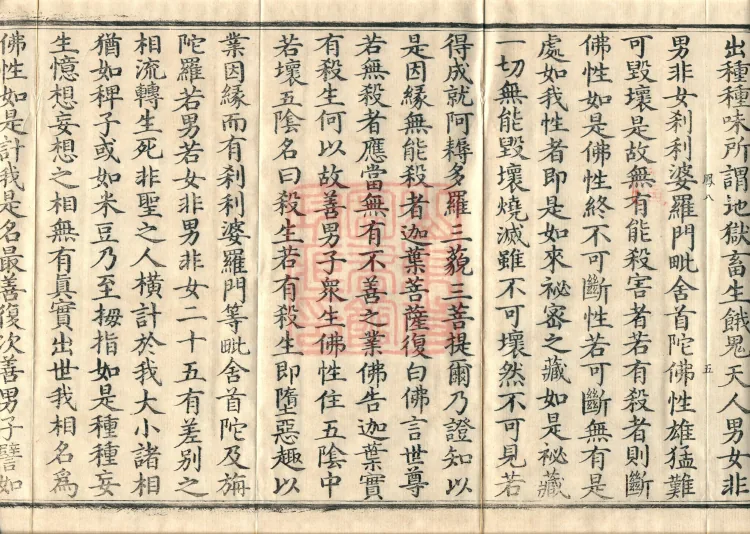 出種種味所謂地獄畜生餓鬼天人男女非
男非女剎利婆羅門毗舍首陀佛性雄猛難
鳳八
五
可毀壞是故無有能殺害者若有殺者則斷
佛性如是佛性終不可斷性若可斷無有是
處如我性者即是如來祕密之藏如是祕藏
一切無能毀壞燒滅雖不可壞然不可見若
得成就阿耨多羅三藐三菩提爾乃證知以
是因緣無能殺者迦葉菩薩復白佛言世尊
若無殺者應當無有不善之業佛告迦葉實
有殺生何以故善男子衆生佛性住五陰中
若壞五陰名曰殺生若有殺生即墮惡趣以
業因緣而有剎利婆羅門等毗舍首陀及旃
陀羅若男若女非男非女二十五有差別之
相流轉生死非聖之人橫計於我大小諸相
猶如稗子或如米豆乃至拇指如是種種妄
生憶想妄想之相無有真實出世我相名爲
佛性如是計我是名最善復次善男子譬如